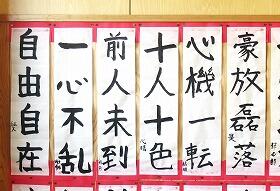 豪放磊落
心機一転
十人十色
前人未到
一心不乱
自由自在